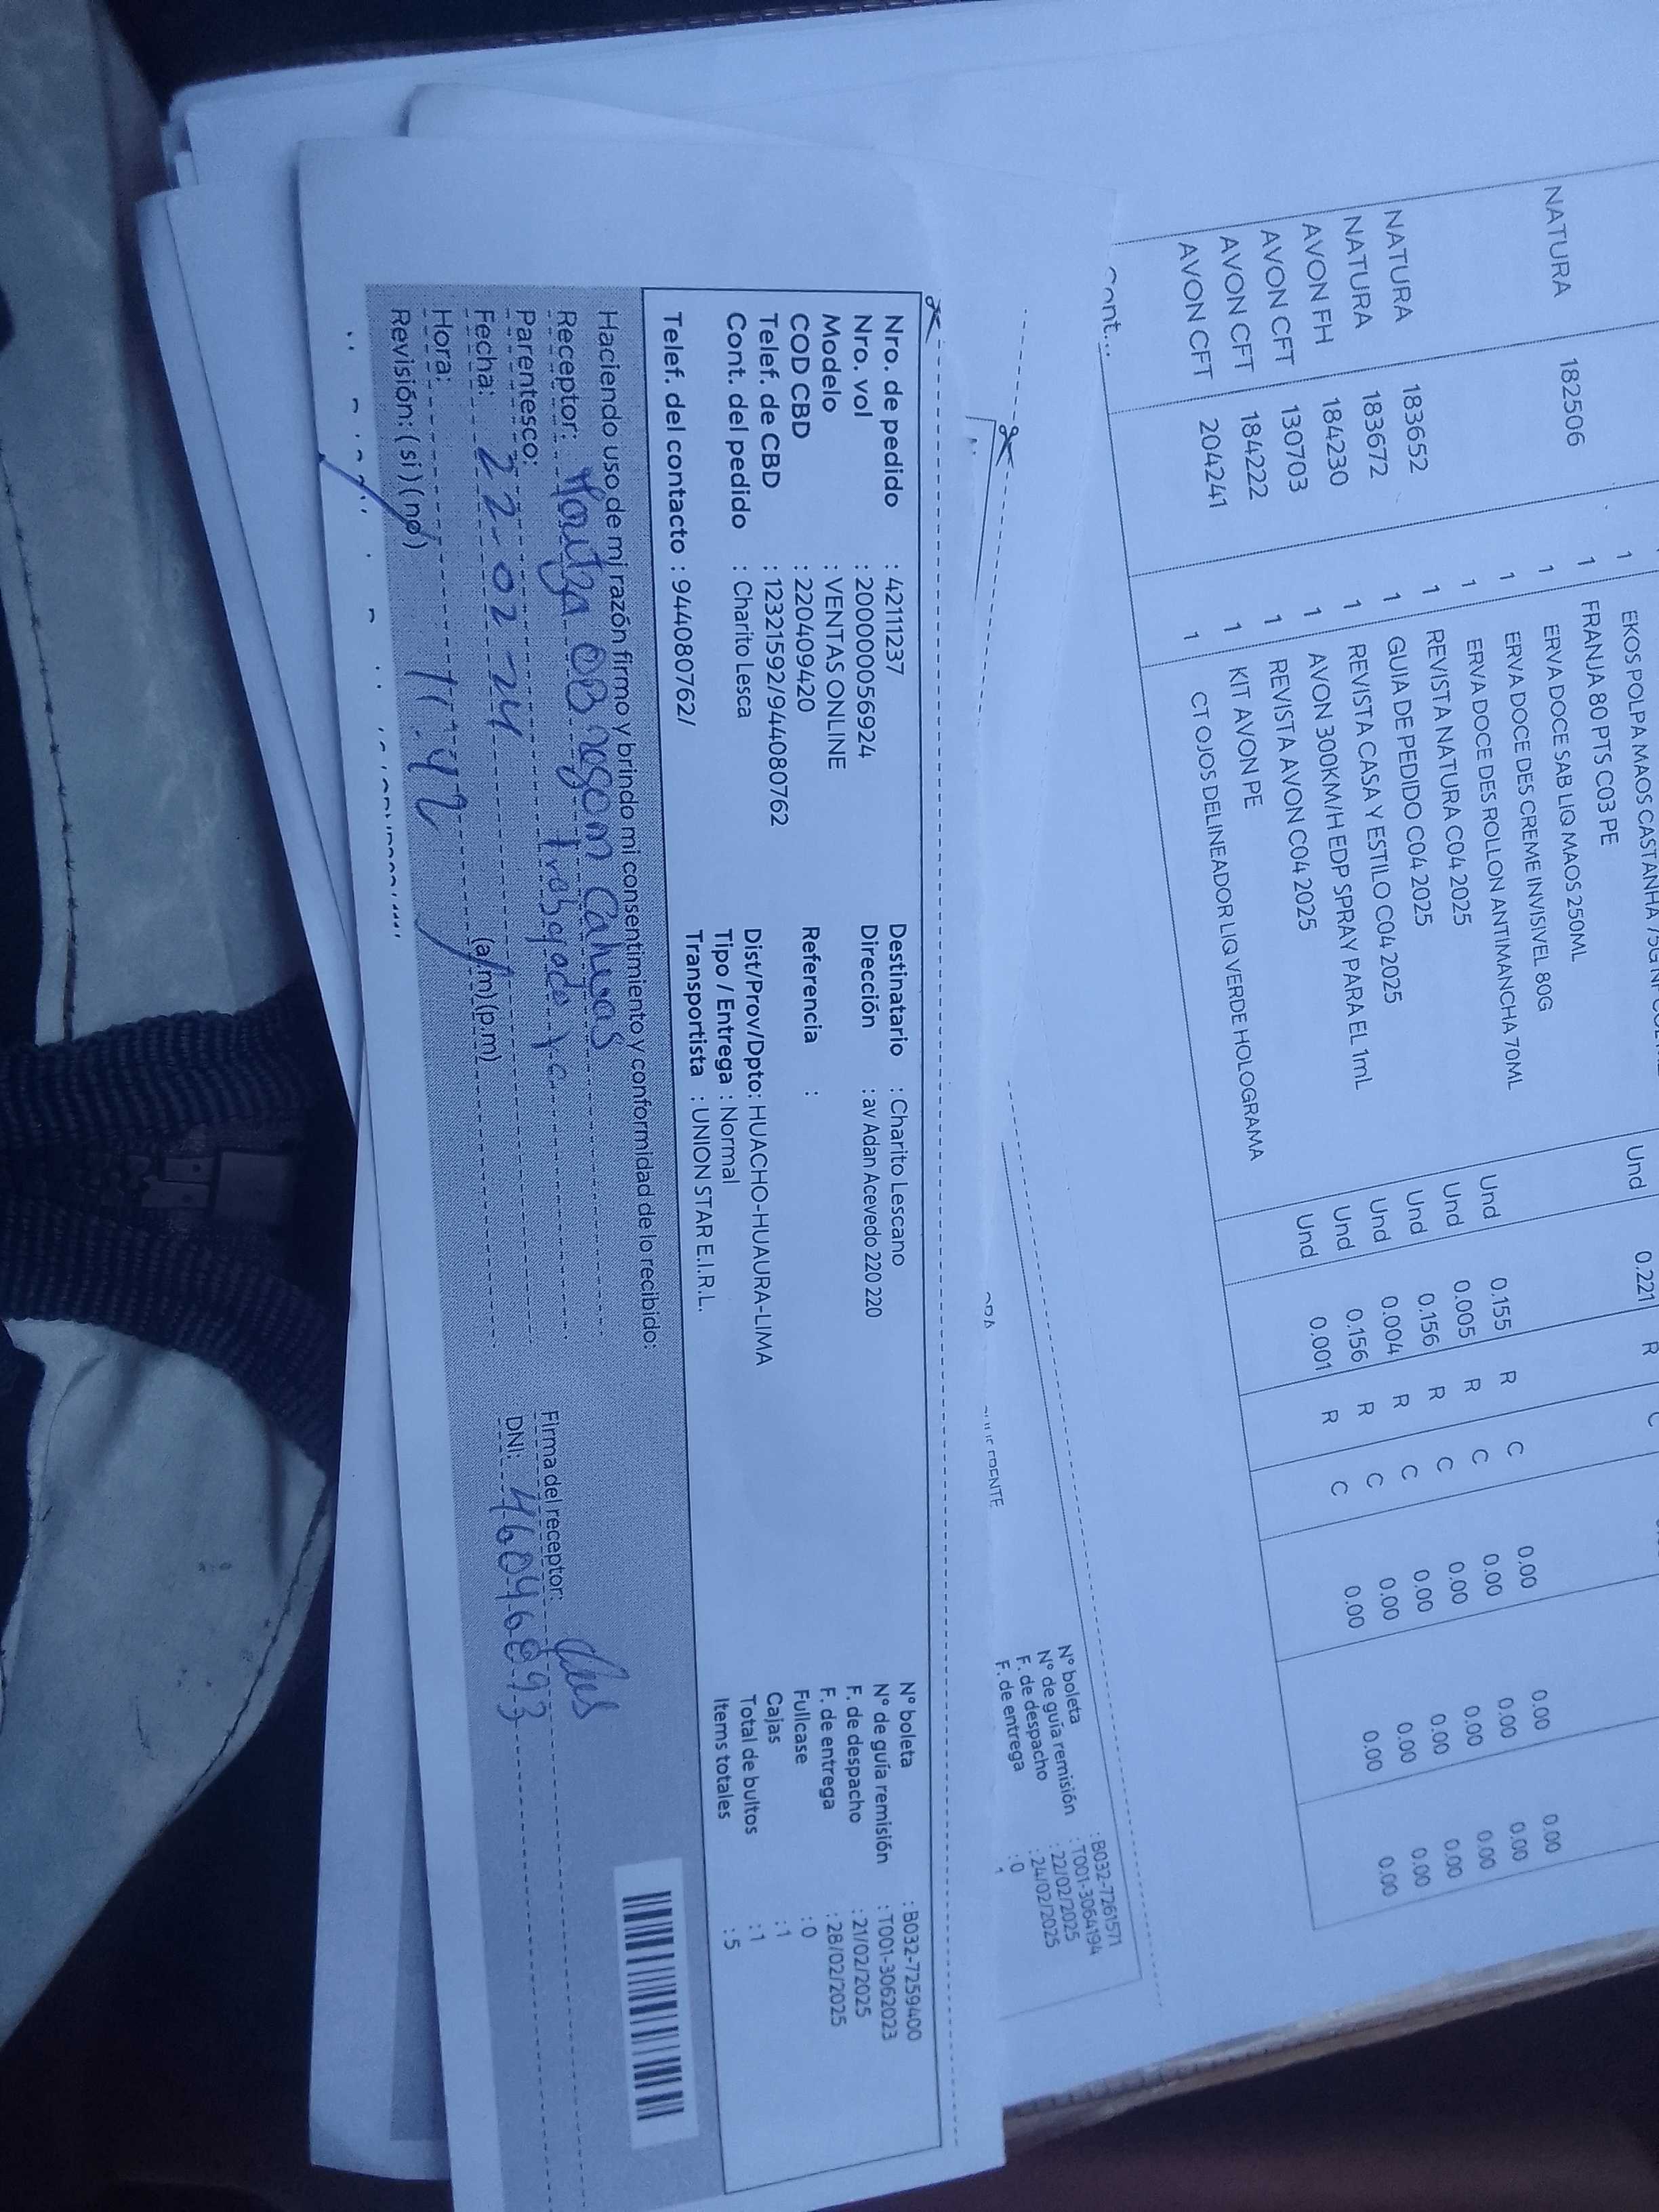 EKOS POLPA MAOS CASTANHA 75G
1 FRANJA 80 PTS C03 PE Und 0.221 R C
NATURA 182506 1 ERVA DOCE SAB LIQ MAOS 250ML
1 ERVA DOCE DES CREME INVISIVEL 80G
1 ERVA DOCE DES ROLLON ANTIMANCHA 70ML
NATURA 183652 1 REVISTA NATURA C04 2025 Und 0.155 R C 0.00 0.00 0.00
NATURA 183672 1 GUIA DE PEDIDO C04 2025 Und 0.005 R C 0.00 0.00 0.00
AVON FH 184230 1 REVISTA CASA Y ESTILO C04 2025 Und 0.156 R C 0.00 0.00 0.00
AVON CFT 130703 1 AVON 300KM/H EDP SPRAY PARA EL 1mL Und 0.004 R C 0.00 0.00 0.00
AVON CFT 184222 1 REVISTA AVON C04 2025 Und 0.156 R C 0.00 0.00 0.00
AVON CFT 204241 1 KIT AVON PE Und 0.001 R C 0.00 0.00 0.00
1 CT OJOS DELINEADOR LIQ VERDE HOLOGRAMA
Cont...
N° boleta : B032-7261571
N° de guía remisión : T001-3064194
F. de despacho : 22/02/2025
F. de entrega : 24/02/2025
: 0
Nro. de pedido : 42111237
Nro. vol : 200000056924
Modelo : VENTAS ONLINE
COD CBD : 220409420
Telef. de CBD : 12321592/944080762
Cont. del pedido : Charito Lesca
Telef. del contacto : 944080762/
Destinatario : Charito Lescano
Dirección : av Adan Acevedo 220 220
Referencia :
Dist/Prov/Dpto: HUACHO-HUAURA-LIMA
Tipo / Entrega : Normal
Transportista : UNION STAR E.I.R.L.
N° boleta : B032-7259400
N° de guía remisión : T001-3062023
F. de despacho : 21/02/2025
F. de entrega : 28/02/2025
Fullcase : 0
Cajas : 1
Total de bultos : 1
Items totales : 5
Haciendo uso de mi razón firmo y brindo mi consentimiento y conformidad de lo recibido:
Receptor:
Parentesco:
Fecha: 22-02-24
Hora: 11:42 (a/m) (p.m)
Revisión: (si) (no)
Firma del receptor:
DNI: 46046893